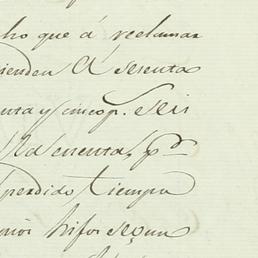 ho que á reclamar
ienden Á sesenta
nta y cinco p. Seis
senta, pd
perdido tiempo
hijos segun